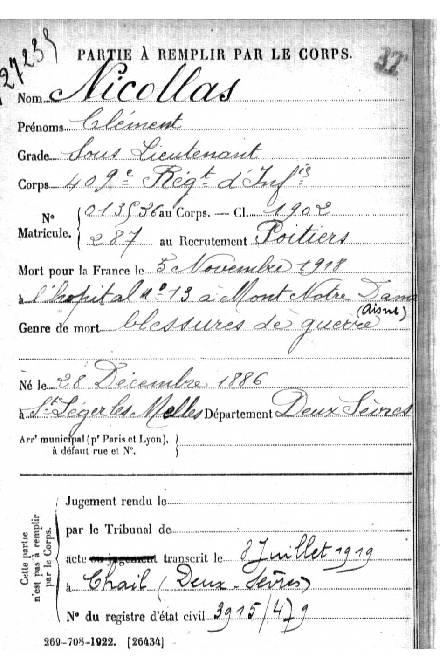 27239
PARTIE À REMPLIR PAR LE CORPS.
32
Nom Nicollas
Prénoms Clément
Grade Sous Lieutenant
Corps 409e Régt d'Infie
No Matricule. 013536 au Corps. — Cl. 1902
287 au Recrutement Poitiers
Mort pour la France le 5 Novembre 1918
à l'hopital no 13 à Mont Notre Dame
(Aisne)
Genre de mort blessures de guerre
Né le 28 Décembre 1886
à St Léger les Melles Département Deux Sèvres
Arrt municipal (pr Paris et Lyon),
à défaut rue et No.
Cette partie
n'est pas à remplir
par le Corps.
Jugement rendu le
par le Tribunal de
acte ou jugement transcrit le 8 Juillet 1919
à Chail (Deux-Sèvres)
No du registre d'état civil 3915/479
269-708-1922. [26434]